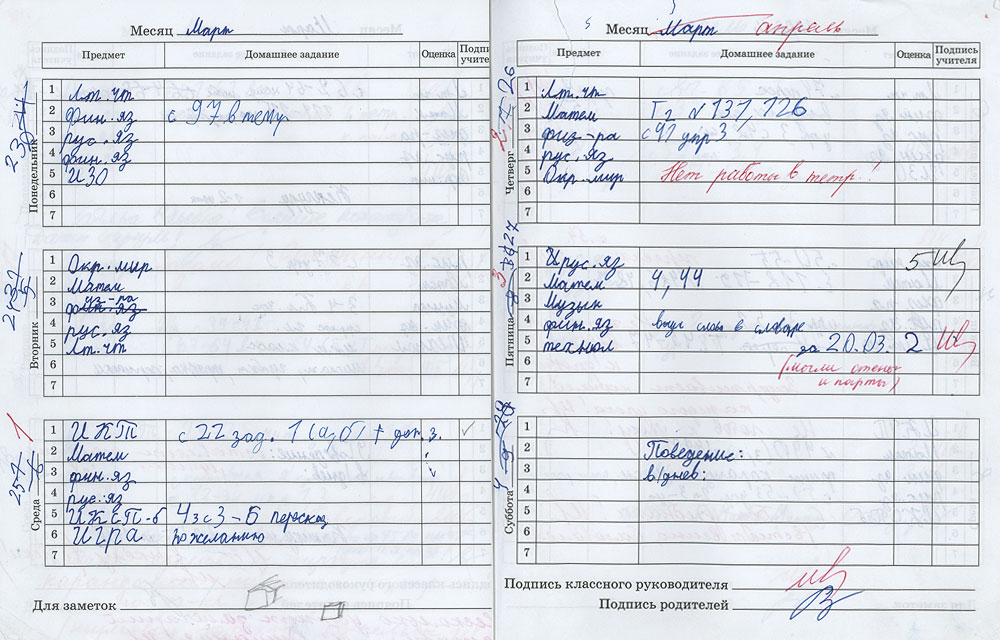 Месяц Март
Предмет Домашнее задание Оценка Подпись учителя
Понедельник
1 Лт.чт
2 фин.яз с 97 в тему
3 рус.яз
4 фин.яз
5 ИЗО
6
7
Вторник
1 Окр.мир
2 Матем
3 физ-ра фин.яз
4 рус.яз
5 Лт.чт
6
7
Среда
1 ИКТ с 22 зад. 1 (а,б) + доп.з.
2 Матем
3 фин.яз
4 рус.яз
5 4з с3-6 переска
6 Игра по желанию
7
Для заметок
Месяц Март апрель
Предмет Домашнее задание Оценка Подпись учителя
Четверг
1 Лт.чт
2 Матем Г2 №137, 126
3 физ-ра с 97 упр 3
4 рус.яз
5 Окр.мир Нет работы в тетр.!
6
7
Пятница
1 рус.яз 5
2 Матем 4, 44
3 Музык
4 фин.яз выуч слова в словаре
5 технол за 20.03. 2
6 (могли стены
7 и парты)
Суббота
1
2 Поведение:
3 в/днев:
4
5
6
7
Подпись классного руководителя
Подпись родителей